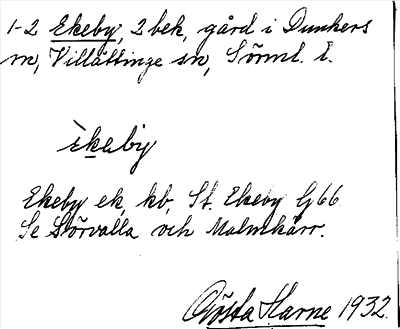 1-2 Ekeby, 2 bek, gård i Dunkers
sn, Villåttinge sn, Sörml. l.
ekeby
Ekeby ek, kb, St. Ekeby G66
Se Störvalla och Malmkärr.
Gösta Harne 1932.